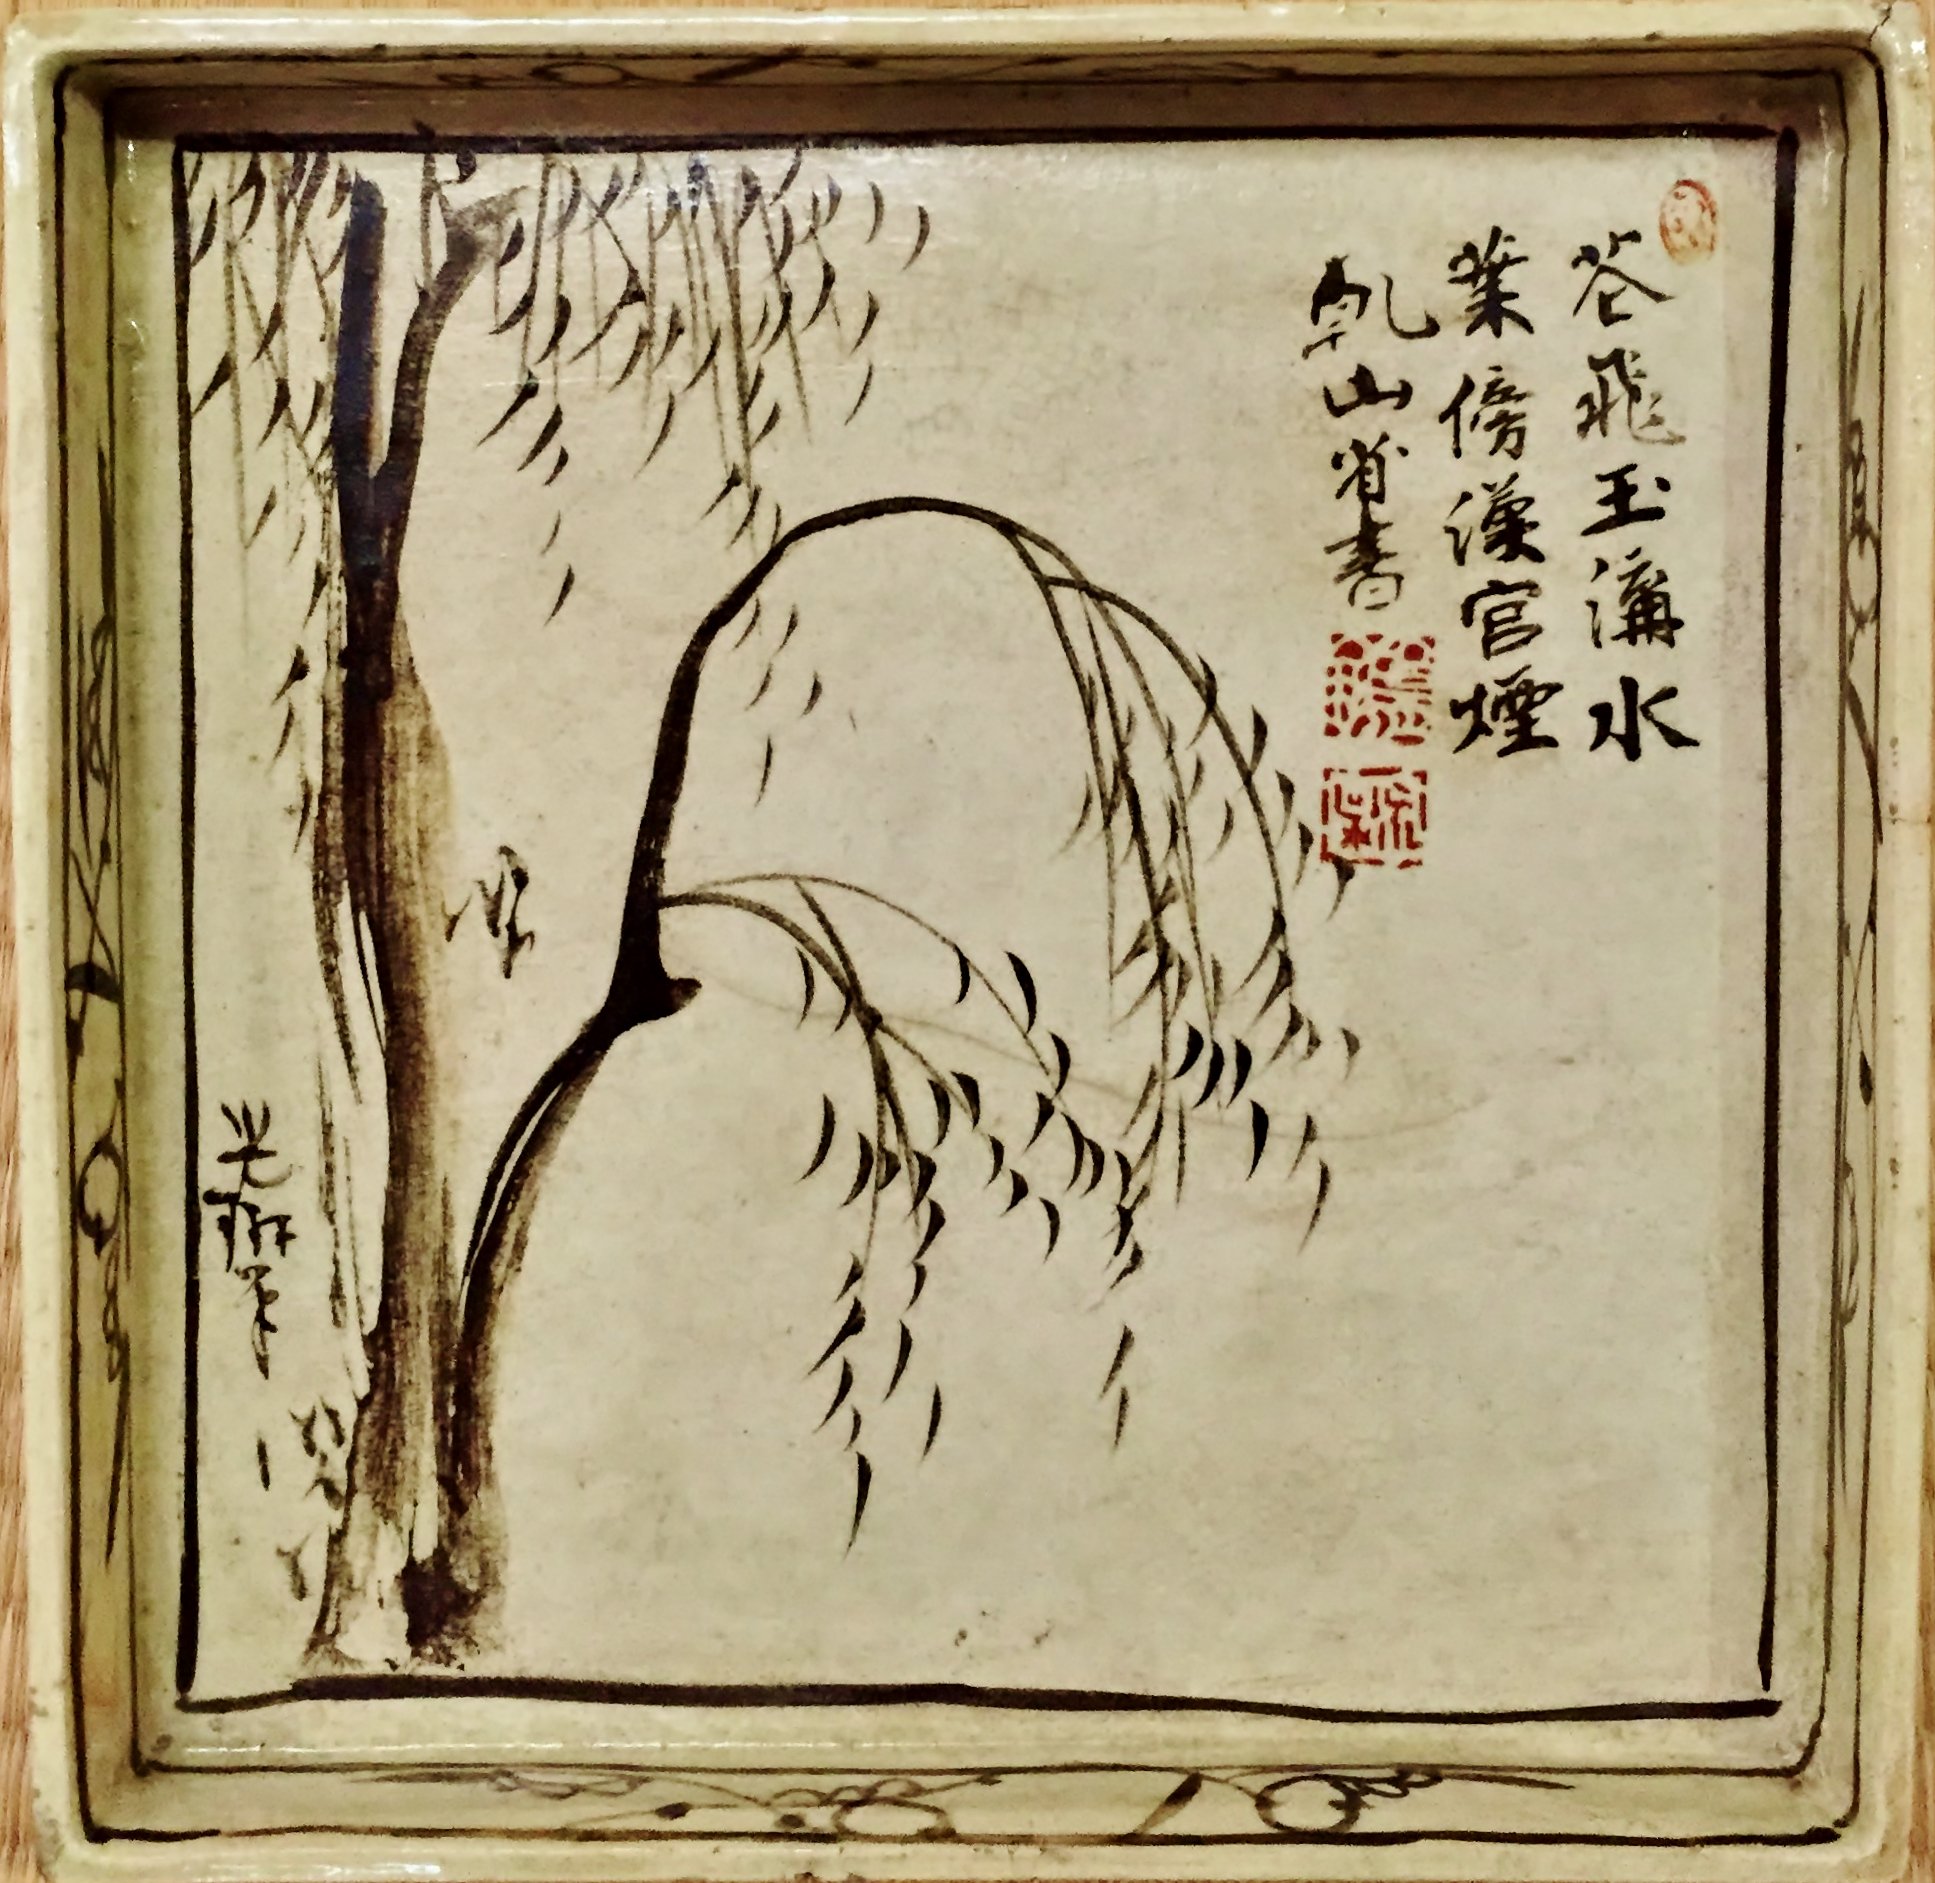 花飛玉溝水
葉傍漢宮煙
乾山省書
光琳筆